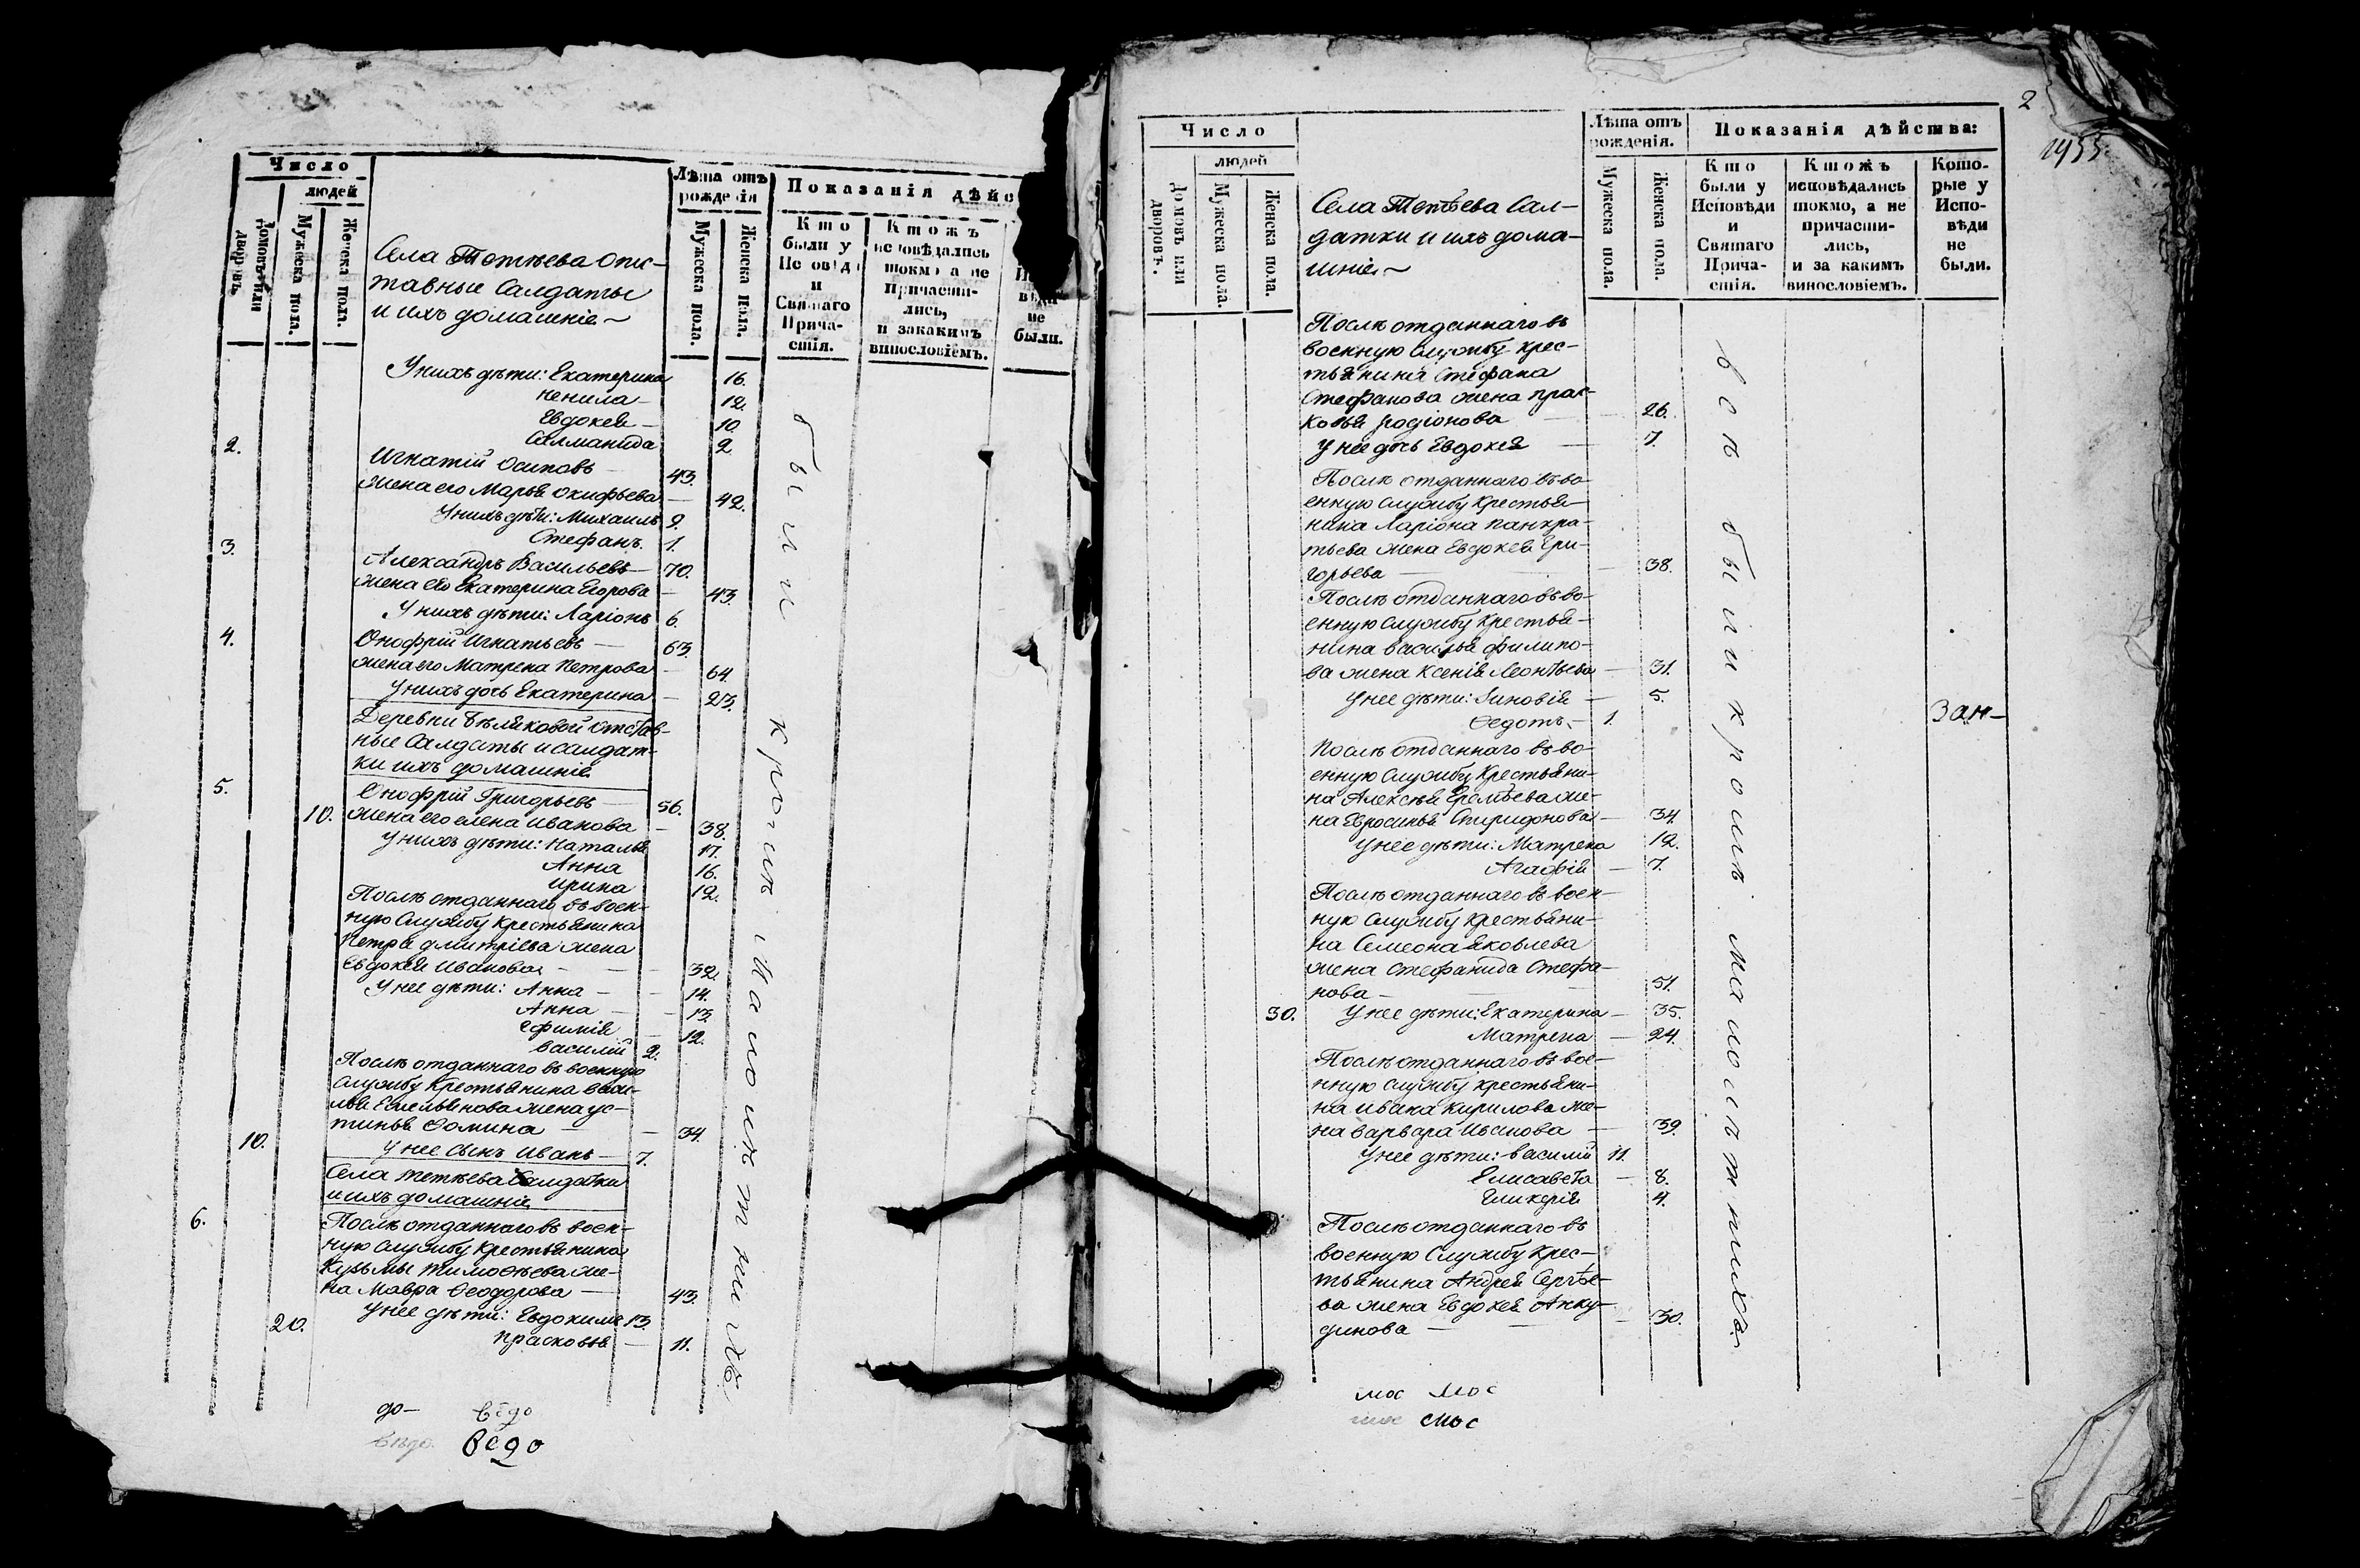 Число
людей
Домовъ или дворовъ.
Мужеска пола.
Женска пола.
Села Тетѣева отс-
тавные Салдаты
и ихъ домашніе
Лѣта отъ
рожденія
Мужеска пола.
Женска пола.
Показанія дѣйс
Кто
были у
Исповѣди
и
Святаго
Прича-
стія.
Ктожъ
исповѣдались
токмо а не
причасти-
лись,
и закакимъ
винословіемъ.
не
были.
У нихъ дѣти: Екатерина 16.
Ненила 12.
Евдокея 10
2. Салманида 2
Игнатій Осиповъ 43.
Жена его Марья Окифьева 42.
У нихъ дѣти: Михаилъ 9.
3. Стефанъ. 1.
Александръ Васильевъ 70.
Жена его Екатерина Егорова 43.
У нихъ дѣти: Ларіонъ 6.
4. Онофрій Игнатьевъ 63.
Жена его Матрена Петрова 64.
У нихъ дочь Екатерина 23.
Деревни Бѣляковой отстав-
ные Салдаты и салдат-
ки ихъ домашніе
5. Онофрій Григорьевъ 56.
10. Жена его елена иванова 38.
У нихъ дѣти: Наталья 17.
Анна 16.
Ирина 12.
Послѣ отданнаго въ воен-
ную Службу Крестьянина
Петра дмитріева жена
Евдокея Иванова 32.
У нее дѣти: Анна 14.
Анна 13.
Ефимія 12.
Василій 2.
Послѣ отданнаго въ военную
Службу Крестьянина Васи-
лья Емельянова жена ус-
тинья Ѳомина 34.
10. У нее сынъ Иванъ 7.
Села Тетѣева Салдатки
и ихъ домашніе
6. Послѣ отданнаго въ воен-
ную Службу Крестьянина
Кузьмы Тимоѳѣева же-
на Мавра Ѳеодорова 43.
20. У нее дѣти: Евдокимъ 13.
Прасковья 11.
были кромѣ малолѣтнихъ
до- ведо
ведо
2
Число
людей
Домовъ или дворовъ.
Мужеска пола.
Женска пола.
Села Тетѣева Сал-
датки и ихъ дома-
шніе
Лѣта отъ
рожденія.
Мужеска пола.
Женска пола.
Показанія дѣйства:
Кто
были у
Исповѣди
и
Святаго
Прича-
стія.
Ктожъ
исповѣдались
токмо, а не
причасти-
лись,
и за какимъ
винословіемъ.
Кото-
рые у
Испо-
вѣди
не
были.
Послѣ отданнаго въ
военную Службу Крес-
тьянина Стефана
Стефанова жена прас-
ковья родіонова 26.
У нее дочь Евдокея 7.
Послѣ отданнаго въ во-
енную Службу Крестья-
нина Ларіона Панкра-
тьева жена Евдокея Гри-
горьева 38.
Послѣ отданнаго въ во-
енную Службу Крестья-
нина василья филипо-
ва жена Ксенія Леонтьева 31.
У нее дѣти: Зиновія 5.
Ѳедотъ 1.
Послѣ отданнаго въ во-
енную Службу Крестьяни-
на Алексѣя Еремѣева же-
на Евросинья Спиридонова 34.
У нее дѣти: Матрена 12.
Агафія 7.
Послѣ отданнаго въ воен-
ную Службу Крестьяни-
на Семеона Яковлева
жена Стефанида Стефа-
нова 51.
30. У нее дѣти: Екатерина 35.
Матрена 24.
Послѣ отданнаго въ вое-
нную Службу крестьяни-
на ивана Кирилова же-
на варвара Иванова 39.
У нее дѣти: василій 11.
Елисавета 8.
Гликерія 4.
Послѣ отданнаго въ
военную Службу Крес-
тьянина Андрея Сергѣе-
ва жена Евдокея Анку-
динова 30.
всѣ были кромѣ малолѣтнихъ
Зан-
мос мос
смос